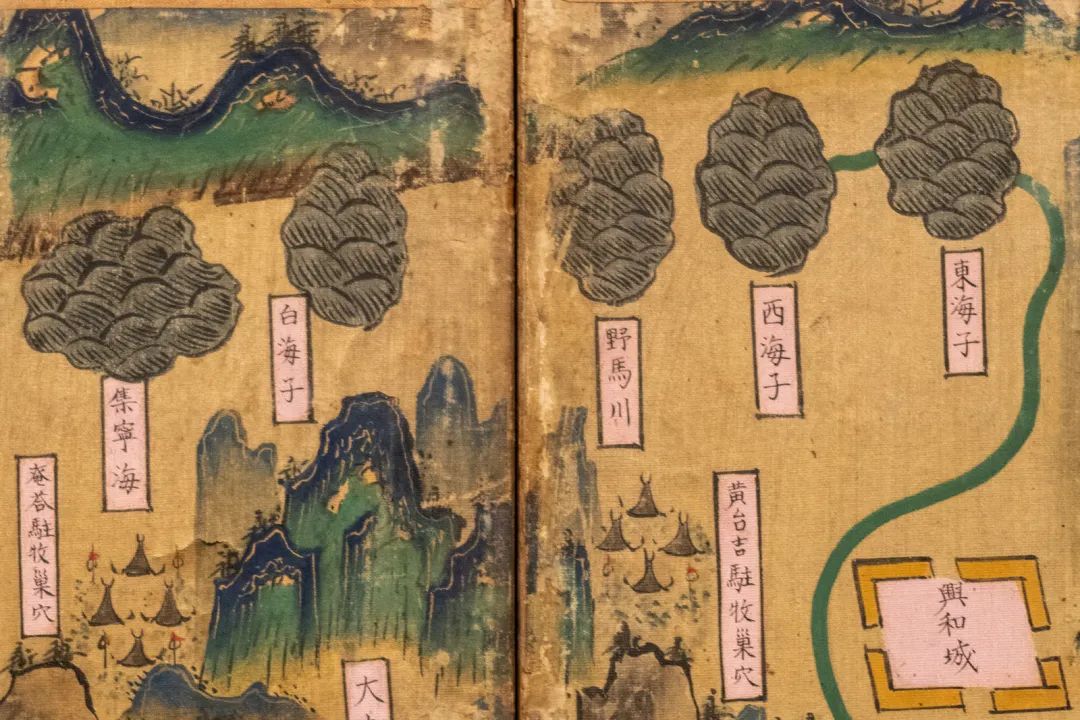 東海子
西海子
野馬川
白海子
集寧海
興和城
黄台吉駐牧巢穴
俺荅駐牧巢穴
大